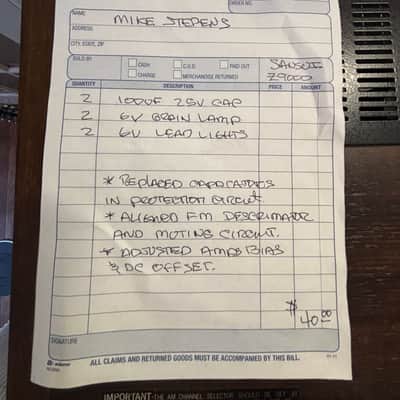 ORDER NO.
NAME MIKE STEPENS
ADDRESS
CITY, STATE, ZIP
SOLD BY CASH C.O.D. PAID OUT SANSUI
CHARGE MERCHANDISE RETURNED Z9000
QUANTITY DESCRIPTION PRICE AMOUNT
2 100UF 25V CAP
2 6V GRAIN LAMP
2 6V LEAD LIGHTS
* REPLACED CAPACITORS
IN PROTECTION CIRCUIT.
* ALIGNED FM DESCRIMATOR
AND MUTING CIRCUIT.
* ADJUSTED AMPS BIAS
& DC OFFSET.
$40.00
SIGNATURE
ALL CLAIMS AND RETURNED GOODS MUST BE ACCOMPANIED BY THIS BILL.
IMPORTANT-THE AM CHANNEL SELECTOR SHOULD BE SET AT